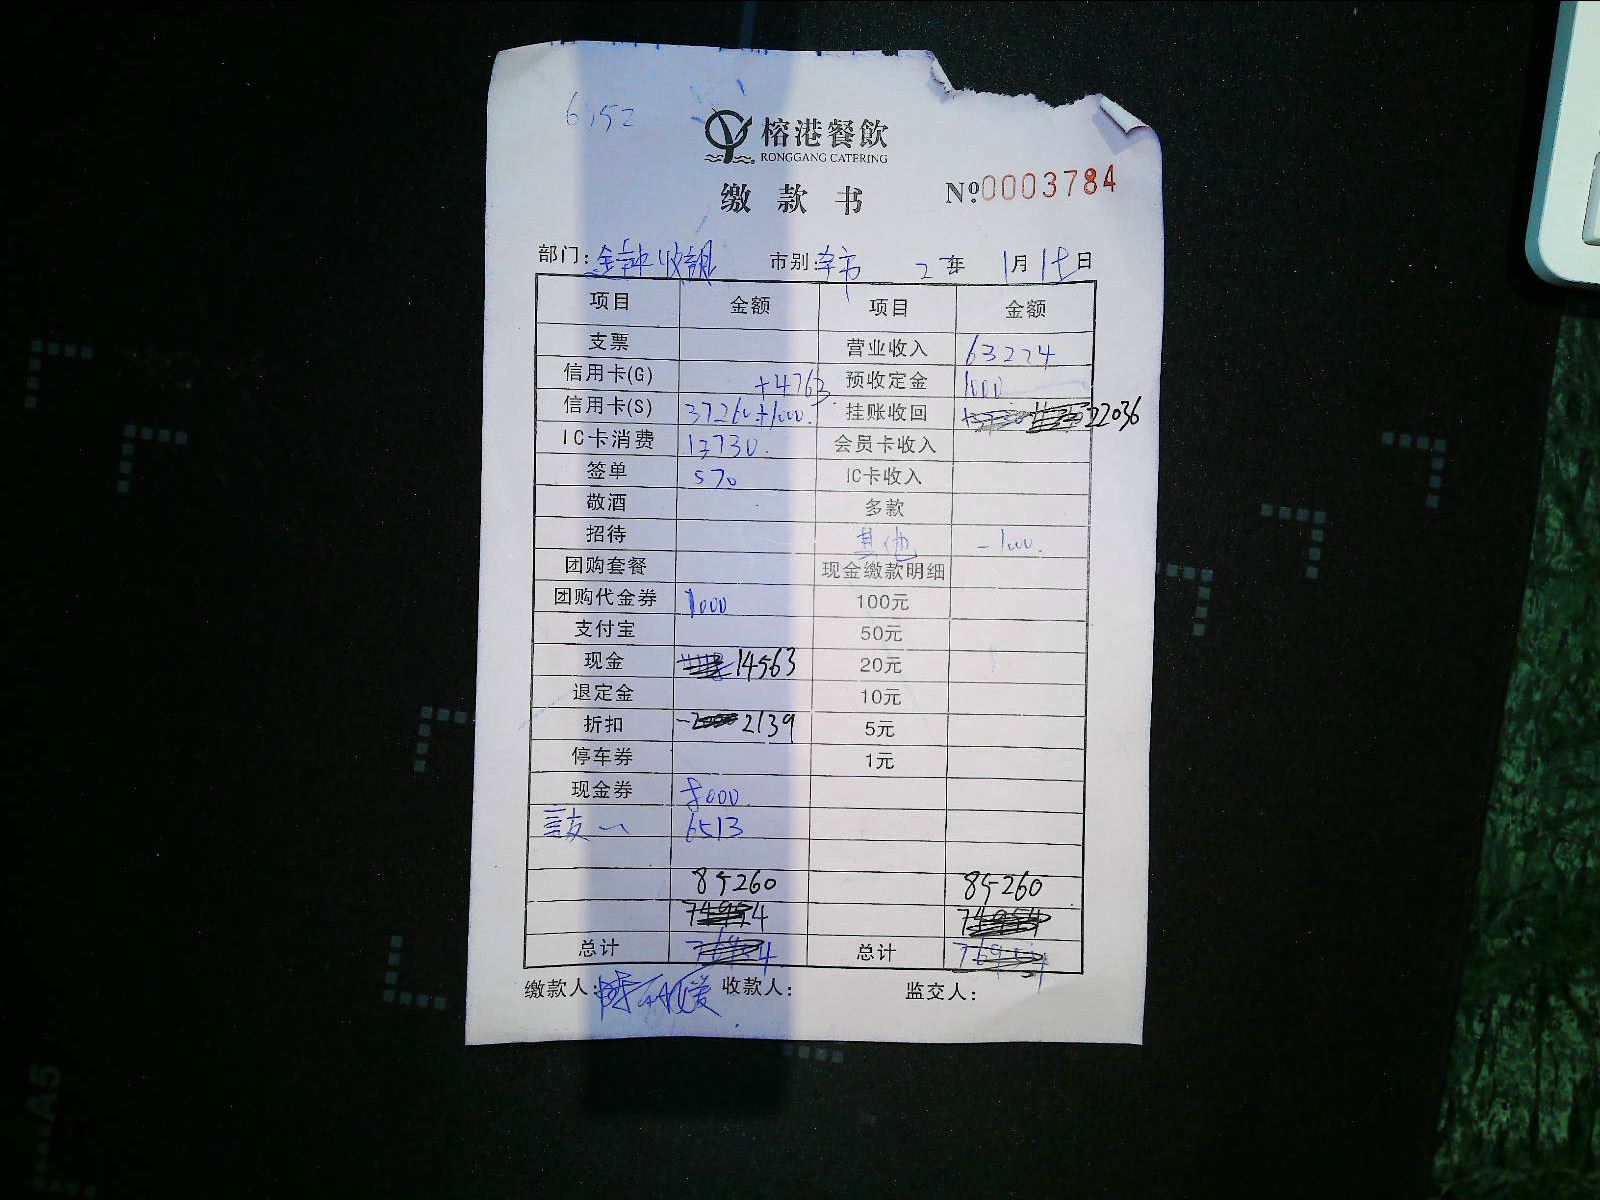 6152
榕港餐飲
RONGGANG CATERING
缴款书 №0003784
部门: 金钟收银 市别: 年 1月 日
项目 金额 项目 金额
支票 营业收入 63224
信用卡(G) +4763 预收定金 1000
信用卡(S) 37260+1000. 挂账收回 22036
IC卡消费 13730. 会员卡收入
签单 570 IC卡收入
敬酒 多款
招待 其他 -1000.
团购套餐 现金缴款明细
团购代金券 1000 100元
支付宝 50元
现金 14563 20元
退定金 10元
折扣 2139 5元
停车券 1元
现金券
6513
85260 85260
总计 总计
缴款人: 收款人: 监交人:
A5